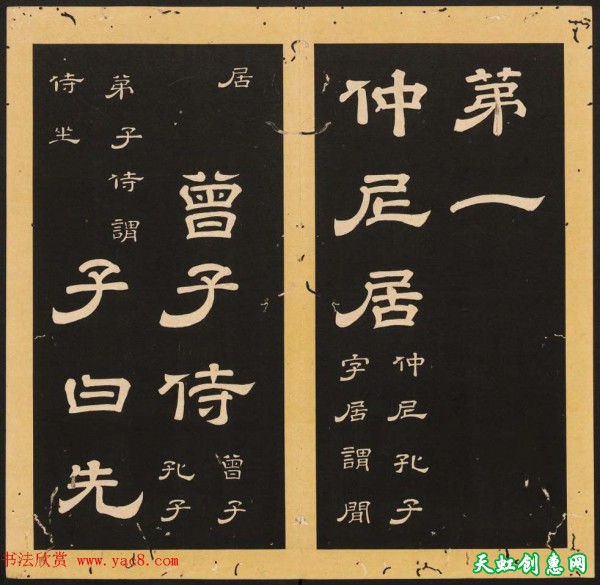 苐一
仲尼居
仲尼孔子
字居謂閒
居
曾子侍
曾子
孔子
苐子侍謂
侍坐
子曰先
书法欣赏 www.yac8.com
天虹创惠网